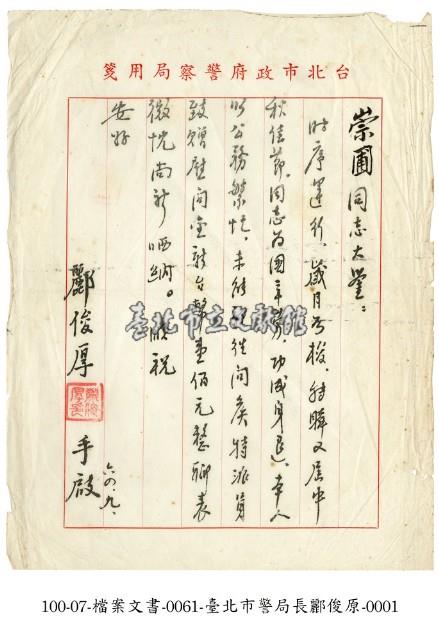 台北市政府警察局用箋
崇圃同志大鑒：
時序運行、歲月如梭、轉瞬又屆中
秋佳節。同志為國辛勞、功成身退、本人
以公務繁忙、未能往問候特派員
致贈慰問金新台幣壹佰元整聊表
微忱尚祈哂納。順祝
安好
酈俊厚 手啟
六四、九、
臺北市立文獻館
100-07-檔案文書-0061-臺北市警局長酈俊原-0001